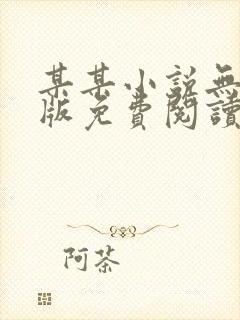 某某小説無
版免費閱讀
阿茶